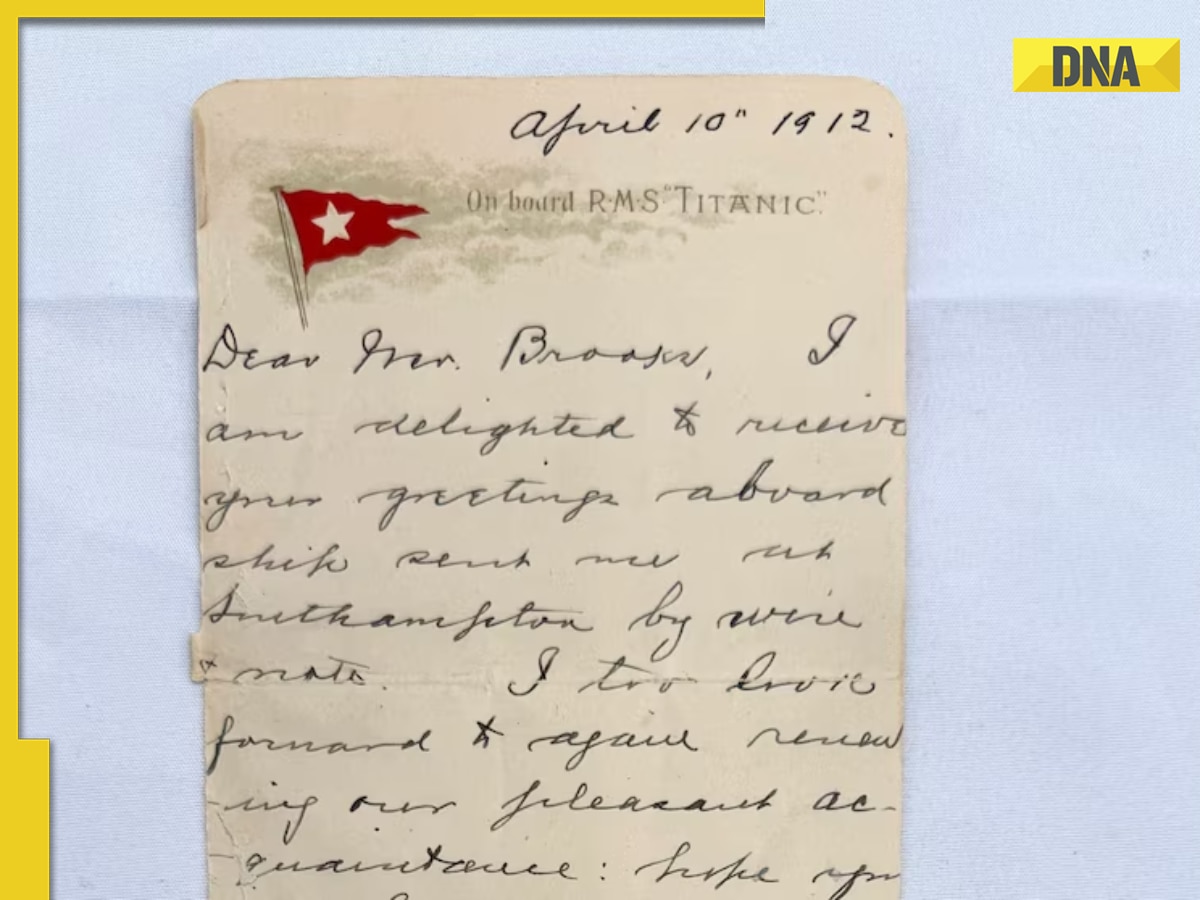 DNA
April 10" 1912.
On board R·M·S "TITANIC".
Dear Mr. Brooks, I
am delighted to receive
your greetings aboard
ship sent me at
Southampton by wire
& note. I too look
forward to again renew
-ing our pleasant ac-
quaintance: hope you